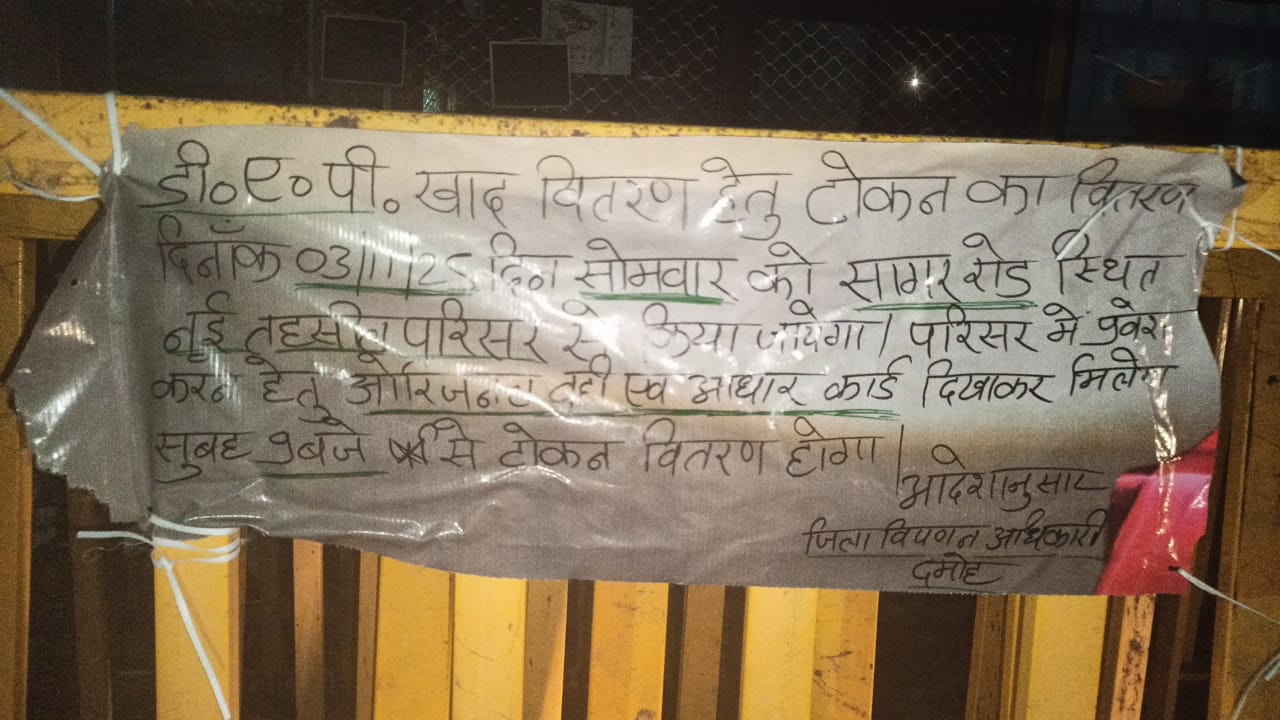 डी०ए०पी० खाद वितरण हेतु टोकन का वितरण
दिनाँक 03/11/25 दिन सोमवार को सागर रोड स्थित
नई तहसील परिसर से किया जायेगा। परिसर में प्रवेश
करने हेतु ओरिजनल वही एवं आधार कार्ड दिखाकर मिलेगा
सुबह 9 बजे से टोकन वितरण होगा।
आदेशानुसार
जिला विपणन अधिकारी
दमोह